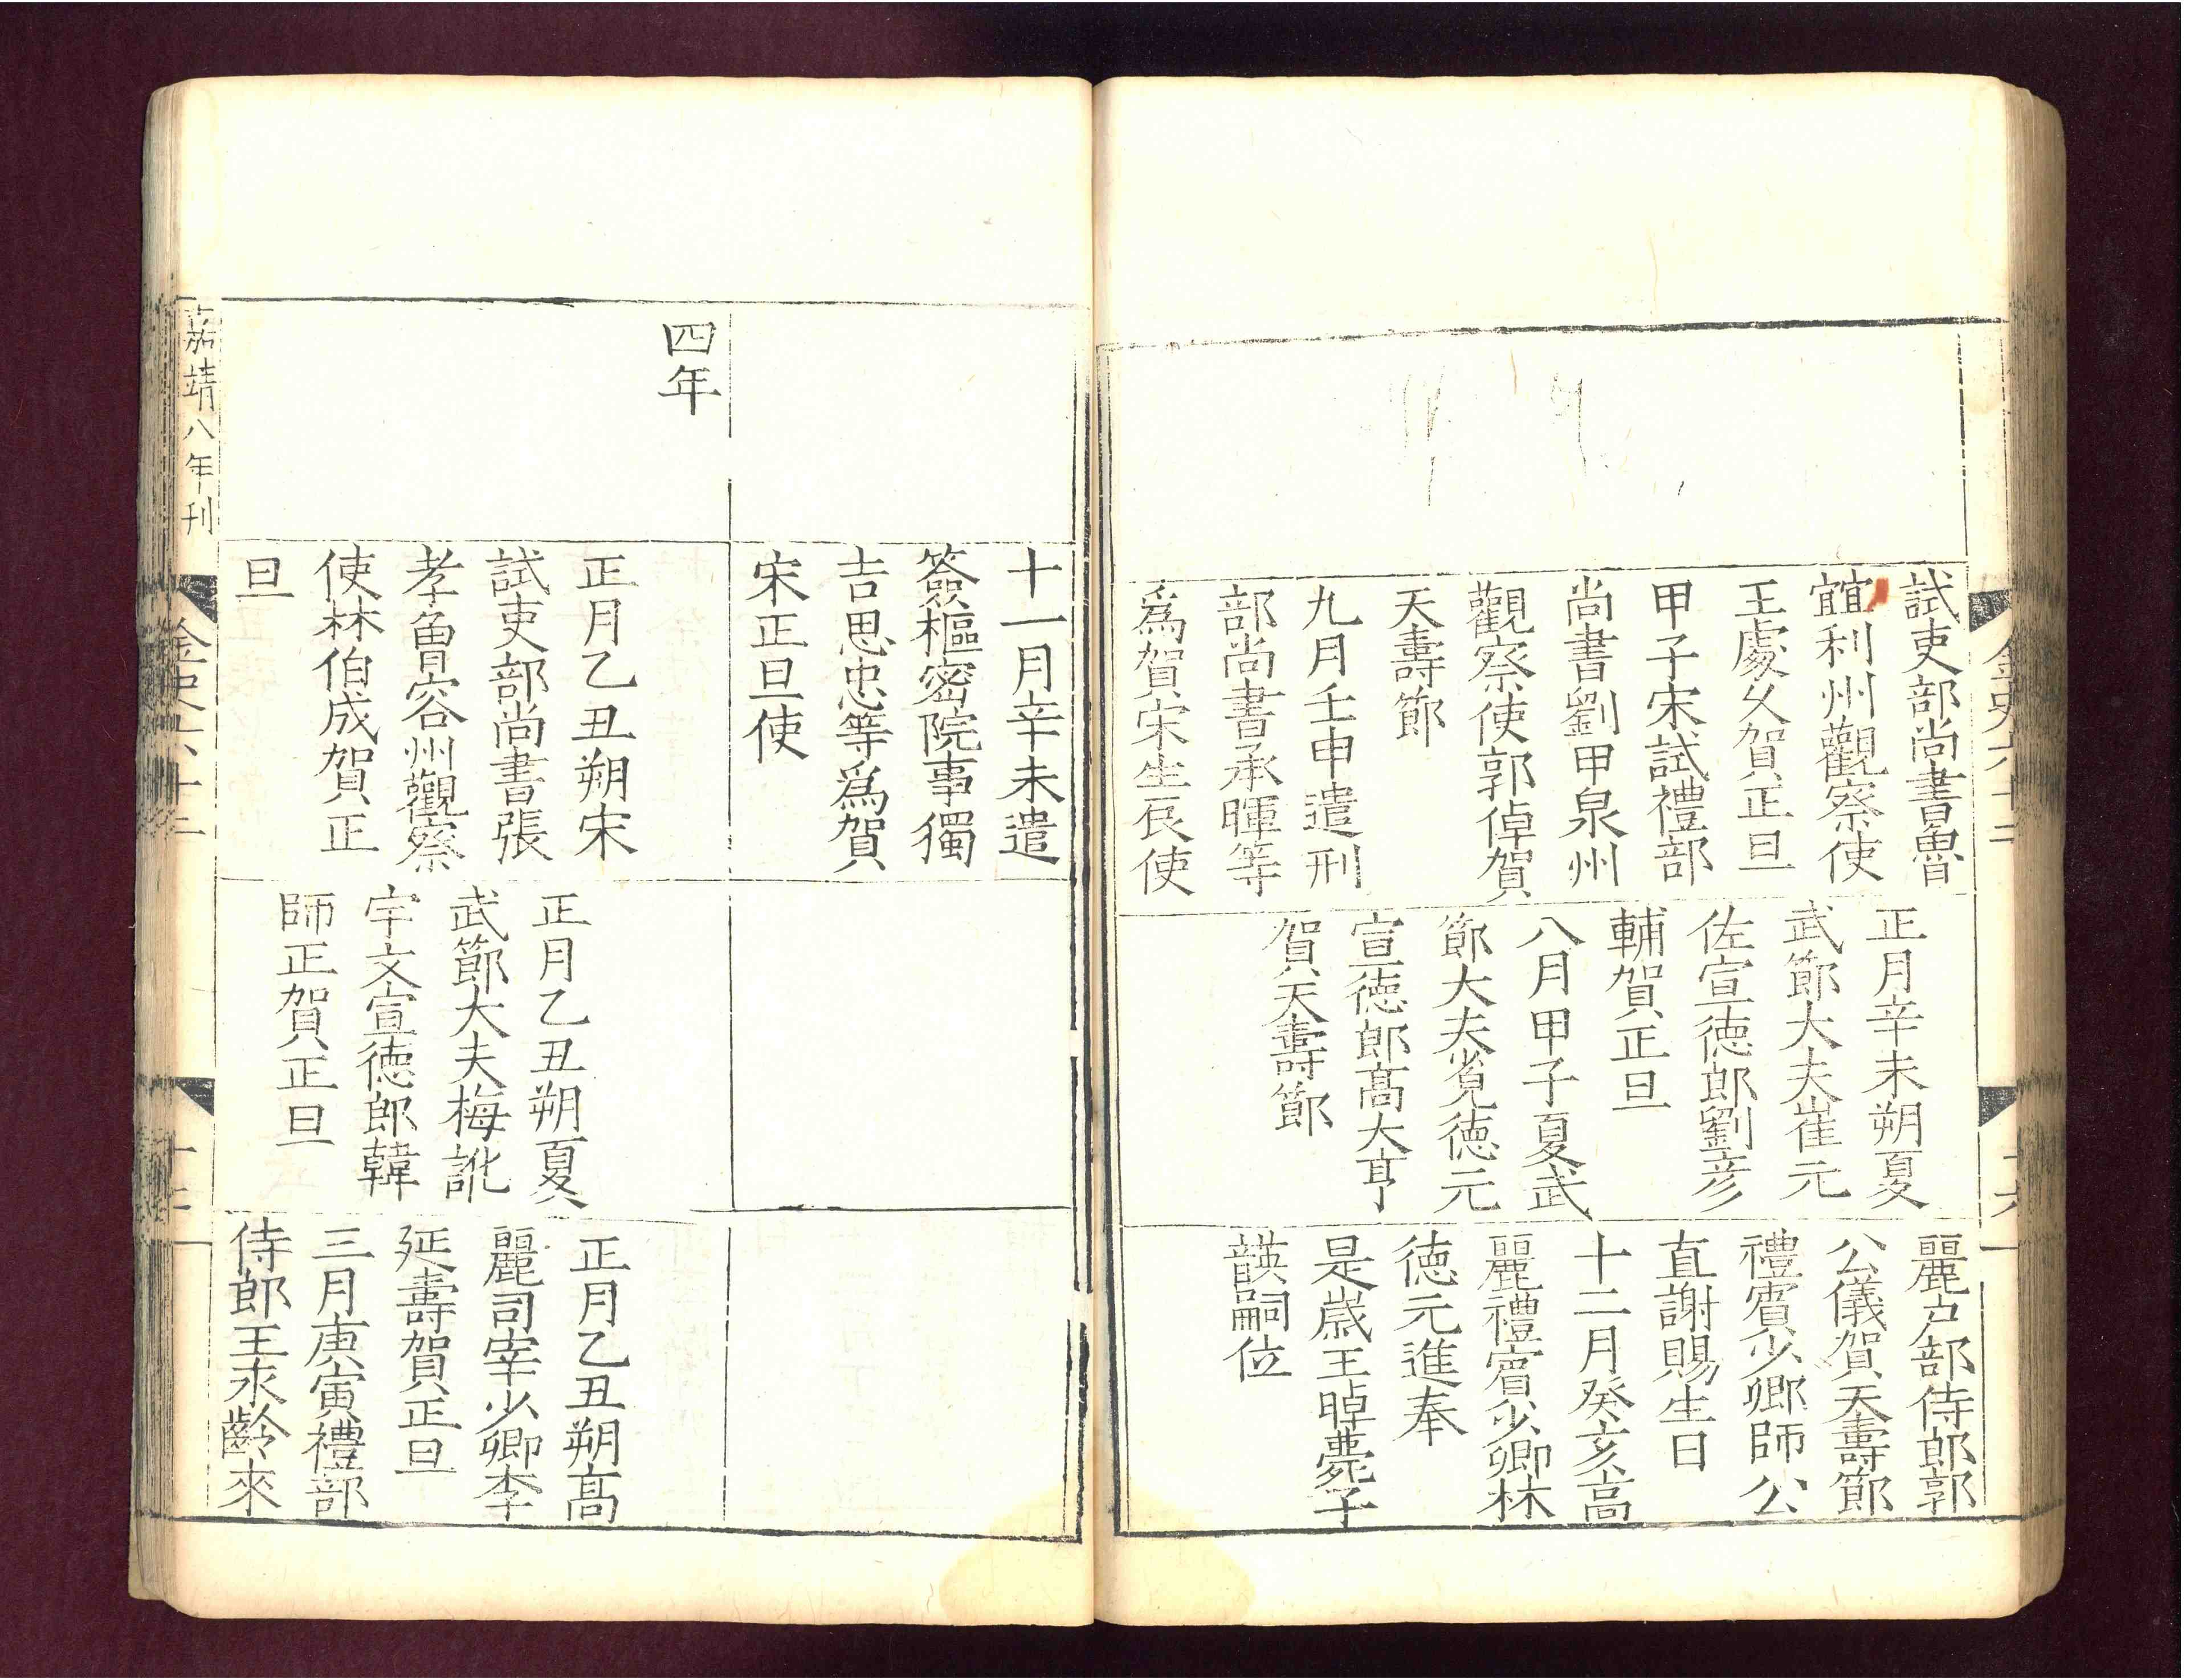 試吏部尚書魯
誼利州觀察使
王處久賀正旦
甲子宋試禮部
尚書劉甲泉州
觀察使郭倬賀
天壽節
九月壬申遣刑
部尚書承暉等
爲賀宋生辰使
正月辛未朔夏
武節大夫崔元
佐宣德郎劉彥
輔賀正旦
八月甲子夏武
節大夫𡨴德元
宣德郎高大亨
賀天壽節
麗户部侍郎郭
公儀賀天壽節
禮賔少卿師公
直謝賜生日
十二月癸亥高
麗禮賔少卿林
德元進奉
是歲王晫薨子
韺嗣位
金史六十二
十六
十一月辛未遣
簽樞密院事獨
吉思忠等爲賀
宋正旦使
四年
正月乙丑朔宋
試吏部尚書張
孝曾容州觀察
使林伯成賀正
旦
正月乙丑朔夏
武節大夫梅訛
宇文宣德郎韓
師正賀正旦
正月乙丑朔高
麗司宰少卿李
延壽賀正旦
三月庚寅禮部
侍郎王永齡來
嘉靖八年刊
金史六十二